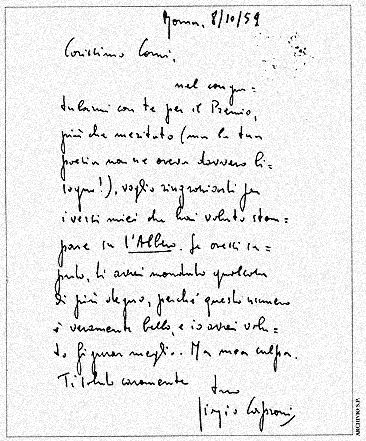 Roma, 8/10/52
Carissimo Comi,
nel congra=
tularmi con te per il Premio,
più che meritato (ma la tua
poesia non ne aveva davvero bi=
sogno!), voglio ringraziarti per
i versi miei che hai voluto stam=
pare su l'Albero. Se avessi sa=
puto, ti avrei mandato qualcosa
di più degno, perché questo numero
è veramente bello, e io avrei volu=
to figurar meglio. Mea culpa.
Ti saluto caramente
tuo
Giorgio Caproni
ARCHIVIO S.P.